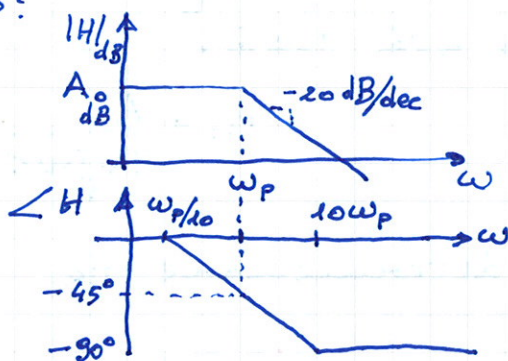 |H|dB
A₀ dB
-20 dB/dec
ωp
ω
∠H
ωp/10
10ωp
ω
-45°
-90°